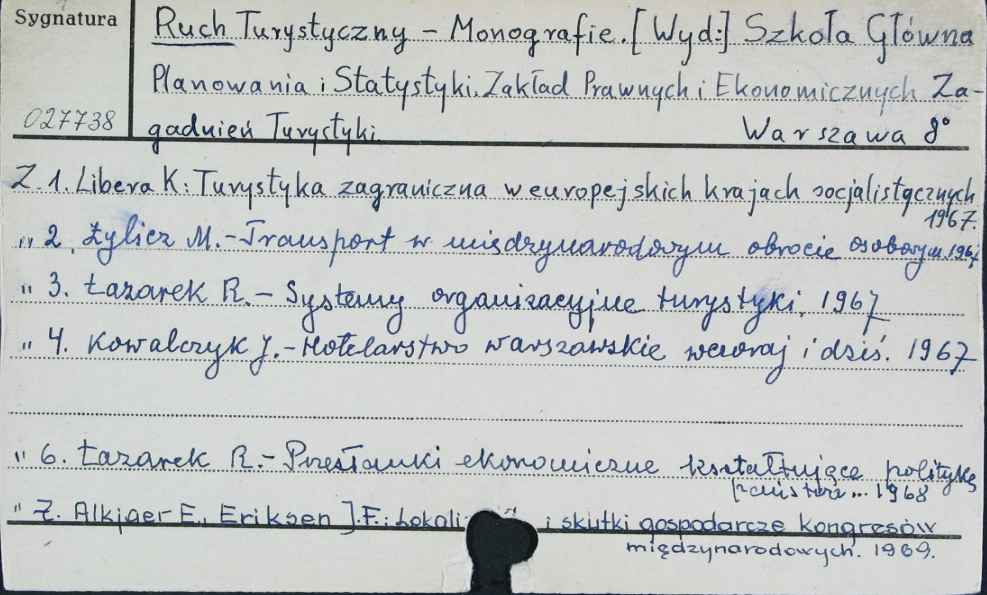 Sygnatura
Ruch Turystyczny - Monografie. [Wyd:] Szkoła Główna
Planowania i Statystyki. Zakład Prawnych i Ekonomicznych Za-
027738
gadnień Turystyki. Warszawa 8°
Z. 1. Libera K: Turystyka zagraniczna w europejskich krajach socjalistycznych
1967.
" 2. Żylicz M. - Transport w międzynarodowym obrocie osobowym. 1967
" 3. Łazarek R. - Systemy organizacyjne turystyki. 1967
" 4. Kowalczyk J. - Hotelarstwo warszawskie wczoraj i dziś. 1967
" 6. Łazarek R. - Przesłanki ekonomiczne kształtujące politykę
państwa... 1968
" 7. Alkjaer E., Eriksen J. F.: i skutki gospodarcze kongresów
międzynarodowych. 1969.